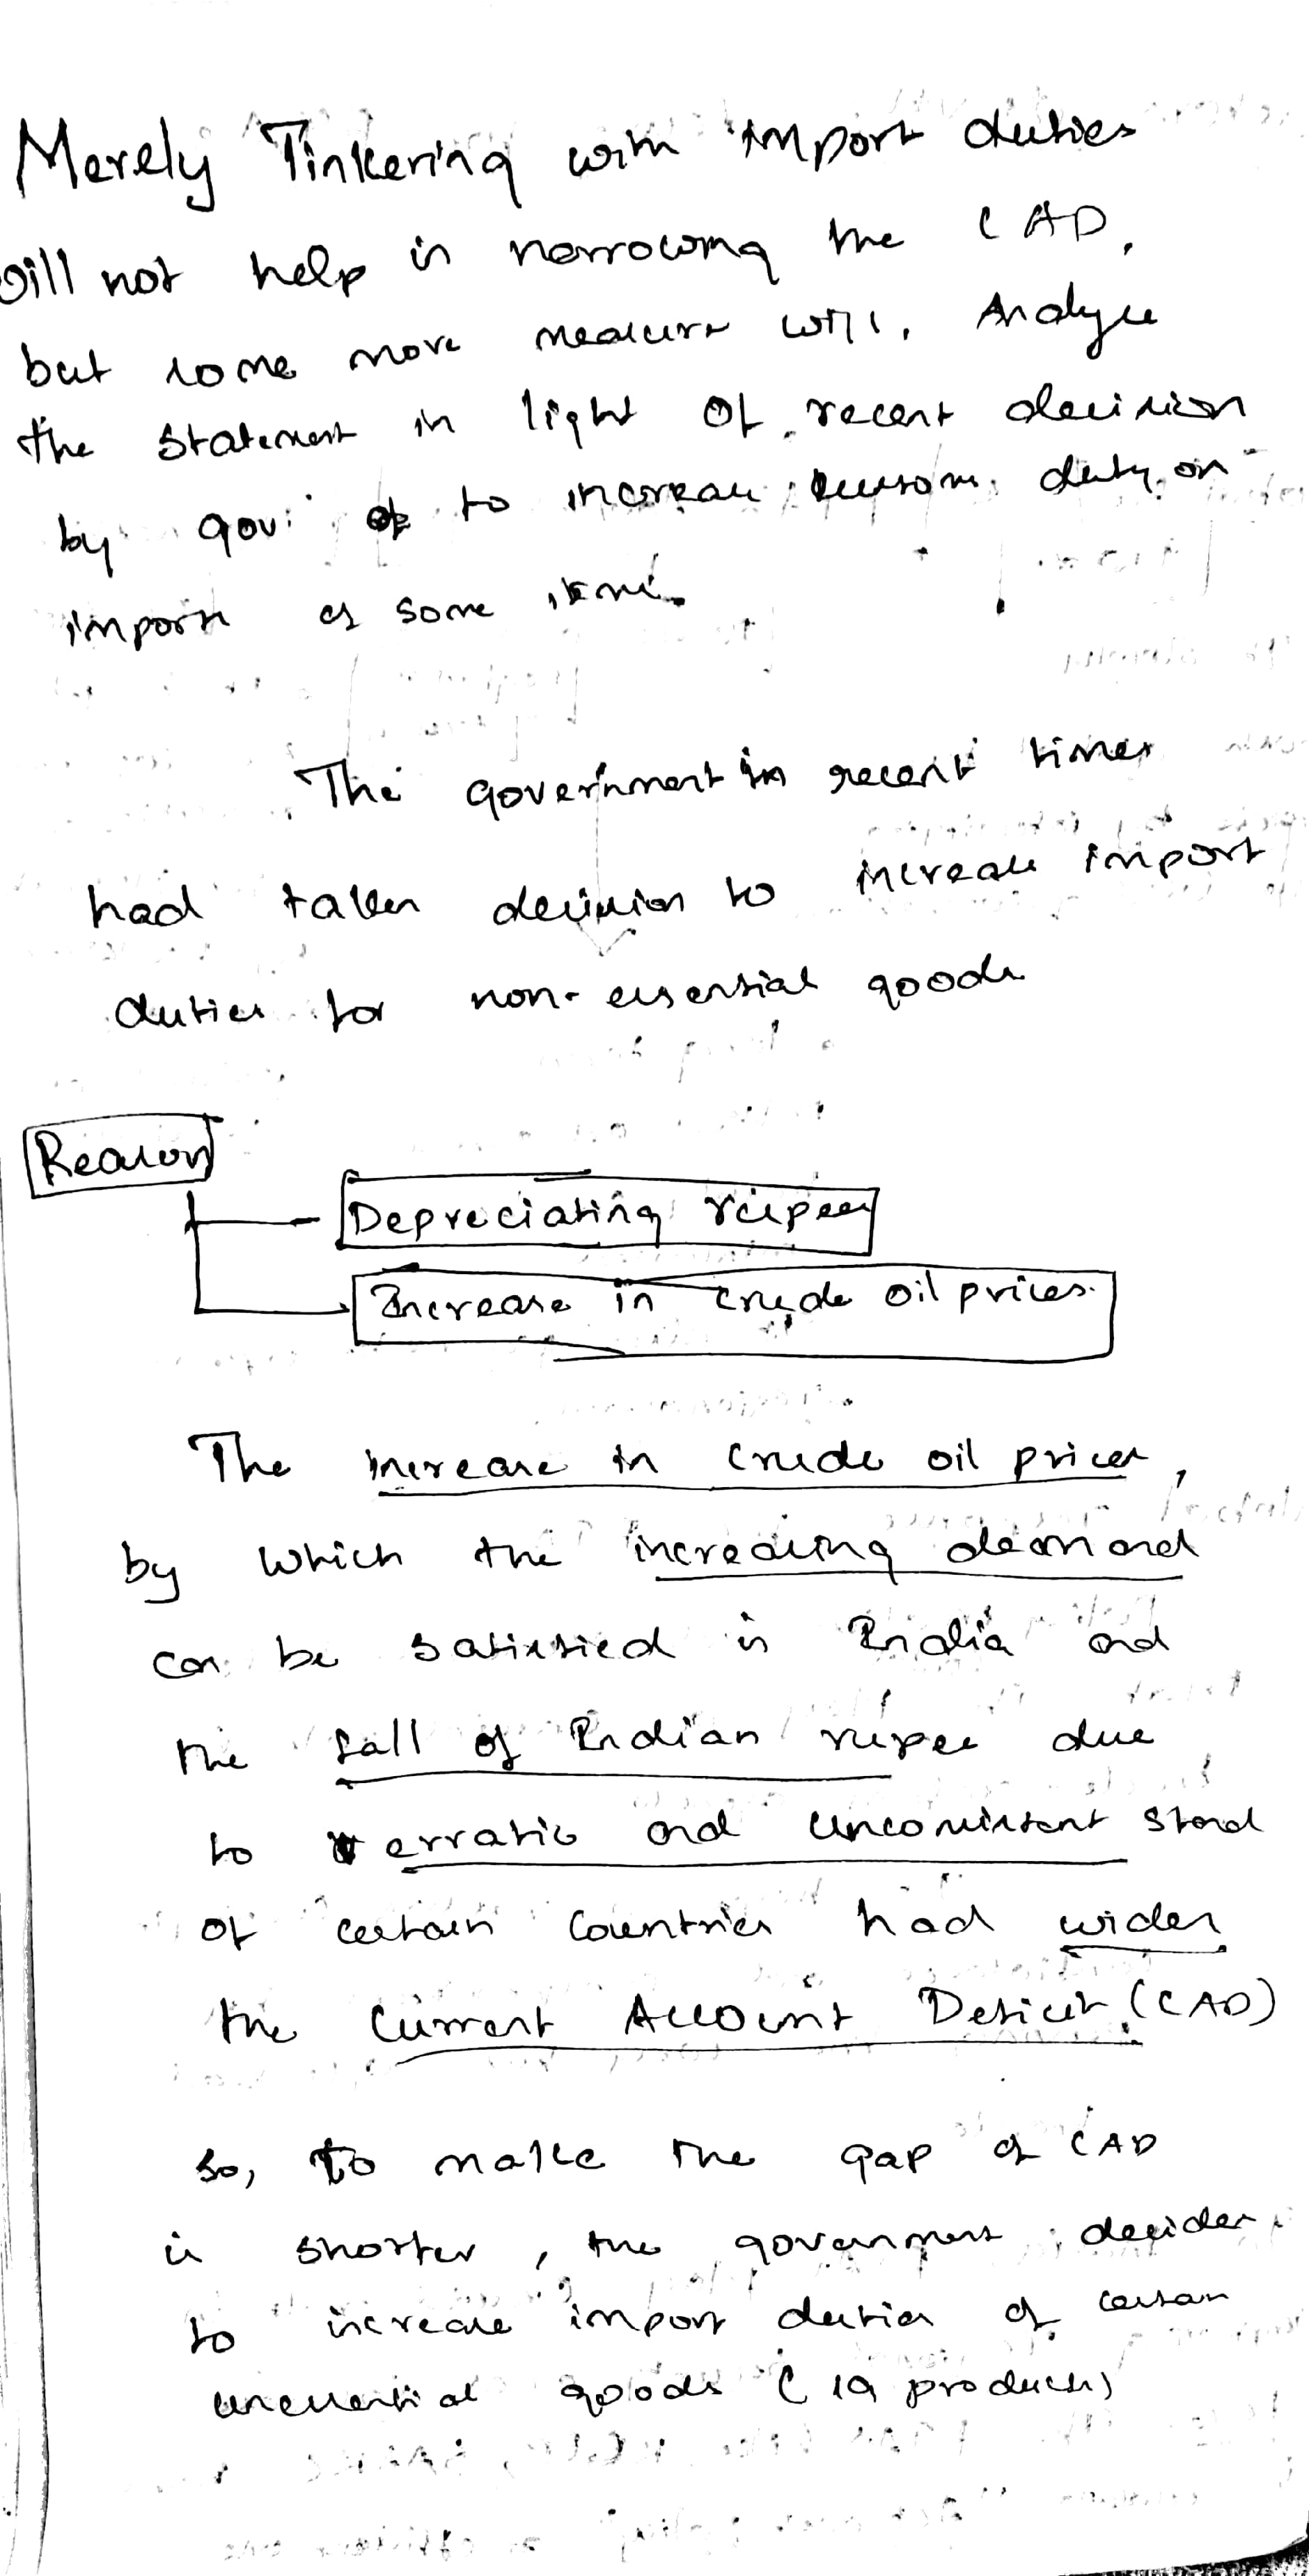 Merely Tinkering with import duties
will not help in narrowing the CAD,
but some more measure will. Analyse
the statement in light of recent decision
by gov. to increase custom duty on
import of some items.
The government in recent times
had taken decision to increase import
duties for non-essential goods
Reason
Depreciating rupee
Increase in crude oil prices.
The increase in crude oil prices,
by which the increasing demand
can be satisfied in India and
the fall of Indian rupee due
to erratic and unconsistent stand
of certain countries had widen
the Current Account Deficit (CAD)
so, to make the gap of CAD
is shorter, the government decides
to increase import duties of certain
unessential goods (19 products)